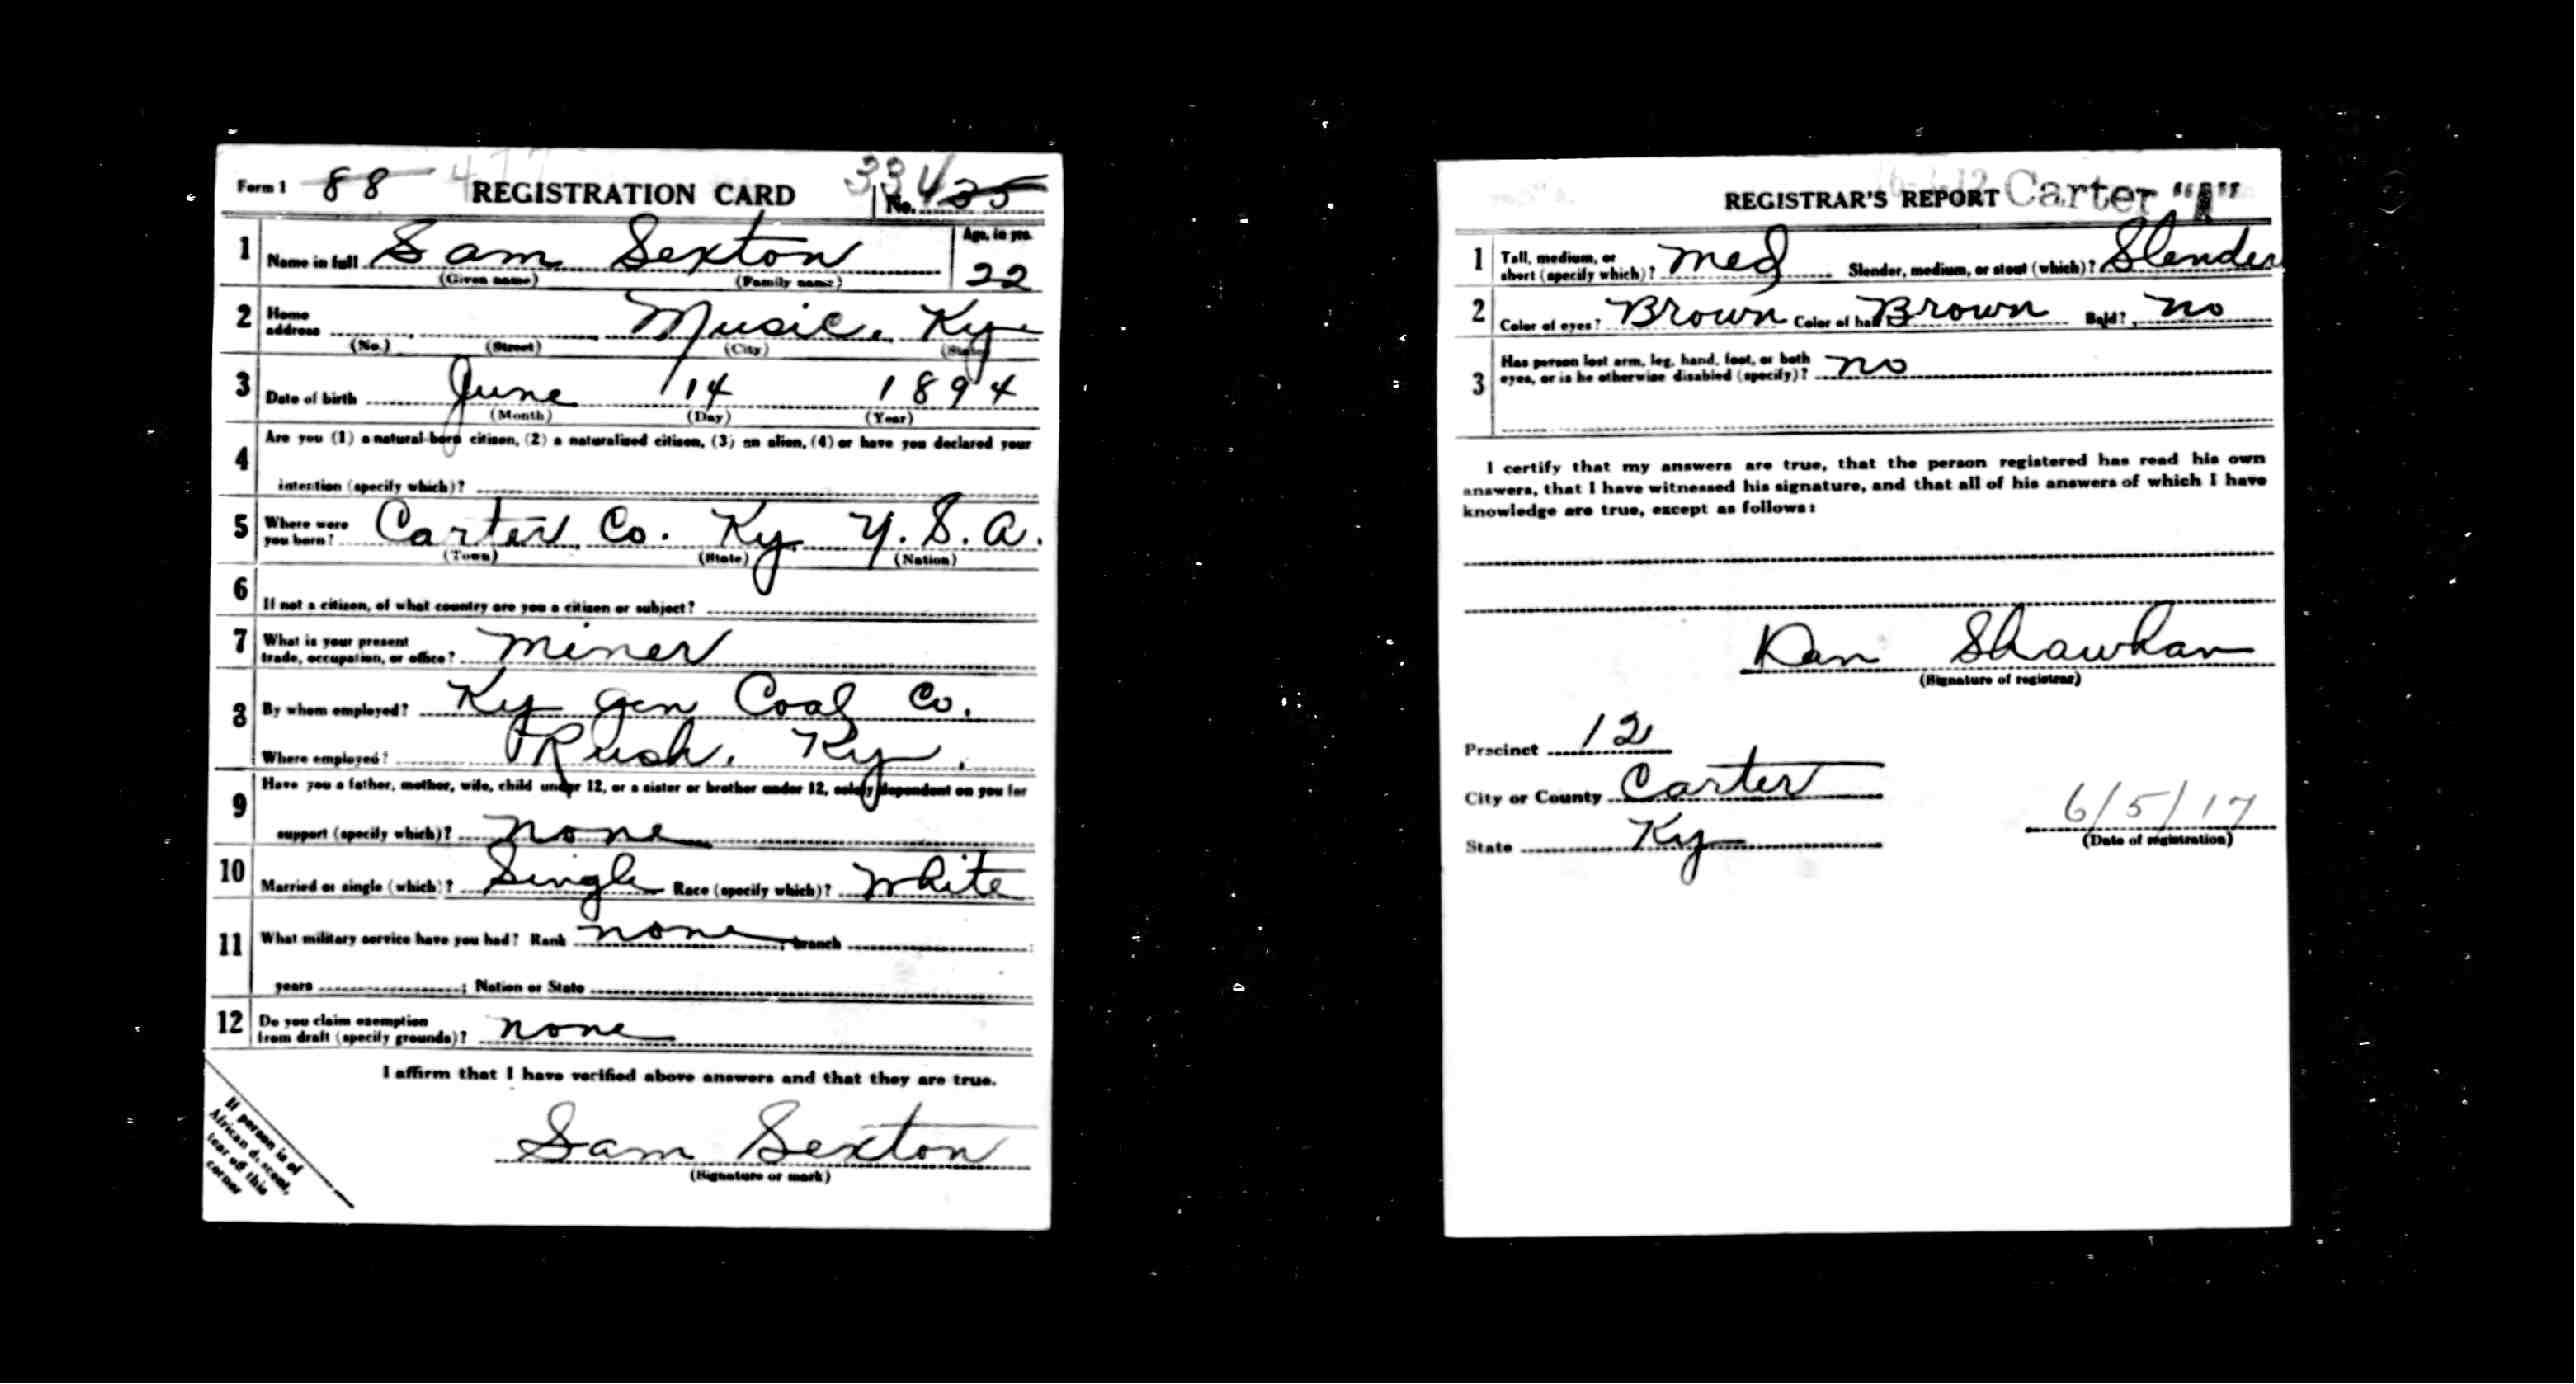 Form 1 88 REGISTRATION CARD 334 No. 35
1 Name in full Sam Sexton Age, in yrs. 22
(Given name) (Family name)
2 Home address Music, Ky
(No.) (Street) (City) (State)
3 Date of birth June 14 1894
(Month) (Day) (Year)
4 Are you (1) a natural-born citizen, (2) a naturalized citizen, (3) an alien, (4) or have you declared your
intention (specify which)?
5 Where were you born? Carter Co. Ky U.S.A.
(Town) (State) (Nation)
6 If not a citizen, of what country are you a citizen or subject?
7 What is your present trade, occupation, or office? miner
8 By whom employed? Ky Gen Coal Co.
Where employed? Rush, Ky.
9 Have you a father, mother, wife, child under 12, or a sister or brother under 12, solely dependent on you for
support (specify which)? none
10 Married or single (which)? Single Race (specify which)? White
11 What military service have you had? Rank none ; branch
years ; Nation or State
12 Do you claim exemption from draft (specify grounds)? none
I affirm that I have verified above answers and that they are true.
Sam Sexton
(Signature or mark)
If person is of
African descent,
tear off this
corner
REGISTRAR'S REPORT Carter "A"
1 Tall, medium, or short (specify which)? Med Slender, medium, or stout (which)? Slender
2 Color of eyes? Brown Color of hair Brown Bald? no
3 Has person lost arm, leg, hand, foot, or both eyes, or is he otherwise disabled (specify)? no
I certify that my answers are true, that the person registered has read his own
answers, that I have witnessed his signature, and that all of his answers of which I have
knowledge are true, except as follows:
Dan Shawhan
(Signature of registrar)
Precinct 12
City or County Carter
State Ky
6/5/17
(Date of registration)